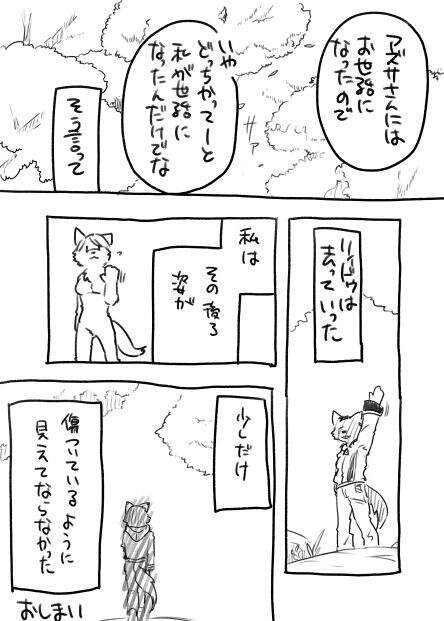 アズサさんには
お世話に
なったので
いや
どっちかってーと
私が世話に
なったんだけどな
そう言って
リイドゥは
去っていった
私は
その後ろ
姿が
少しだけ
傷ついているように
見えてならなかった
おしまい